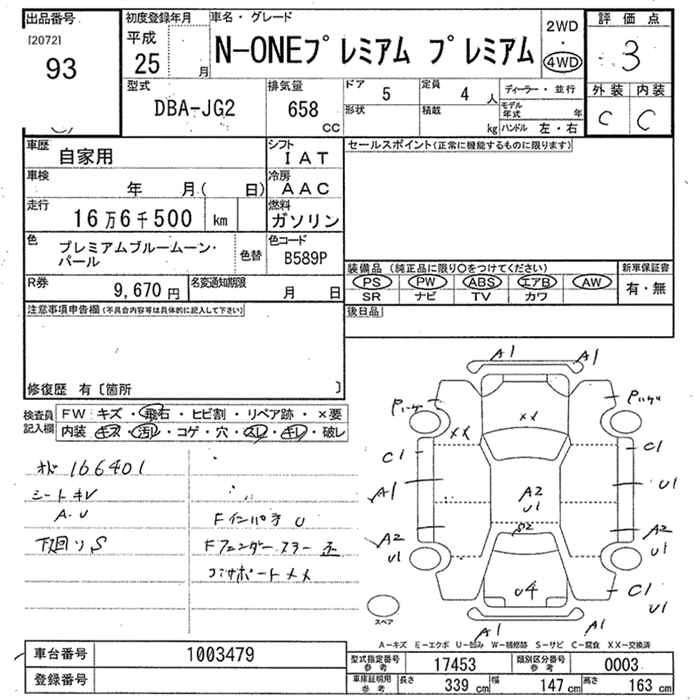 出品番号
[2072]
93
初度登録年月
平成
25 月
車名・グレード
N-ONEプレミアム プレミアム
2WD
・
4WD
評価点
3
外装 内装
C C
型式
DBA-JG2
排気量
658
CC
ドア
5
定員
4 人
形状
積載
kg
ディーラー・並行
モデル年式 年
ハンドル 左・右
車歴
自家用
シフト
IAT
車検
年 月( 日)
冷房
AAC
走行
16万6千500 km
燃料
ガソリン
色
プレミアムブルームーン・パール
色替
色コード
B589P
R券
9,670 円
名変通知期限
月 日
セールスポイント(正常に機能するものに限ります)
装備品 (純正品に限り○をつけてください)
PS PW ABS エアB AW
SR ナビ TV カワ
新車保証書
有・無
後日品
注意事項申告欄(不具合内容等は具体的に記入して下さい)
修復歴 有〔箇所 〕
検査員記入欄
FW キズ・飛石・ヒビ割・リペア跡・×要
内装 キズ・汚レ・コゲ・穴・スレ・キレ・破レ
166401
シートキV
A.U
下回りS
Fインパネ U
Fフェンダーステー 歪
コアサポートXX
A1
A1
XX
XX
C1
C1
A1
U1
A2
U1
A2
U1
A2
U1
S2
U4
C1
U1
A1
A1
スペア
A−キズ E−エクボ U−凹み W−補修跡 S−サビ C−腐食 XX−交換済
車台番号
1003479
登録番号
型式指定番号 参考
17453
類別区分番号 参考
0003
車庫証明用 参考
長さ 339 cm
幅 147 cm
高さ 163 cm